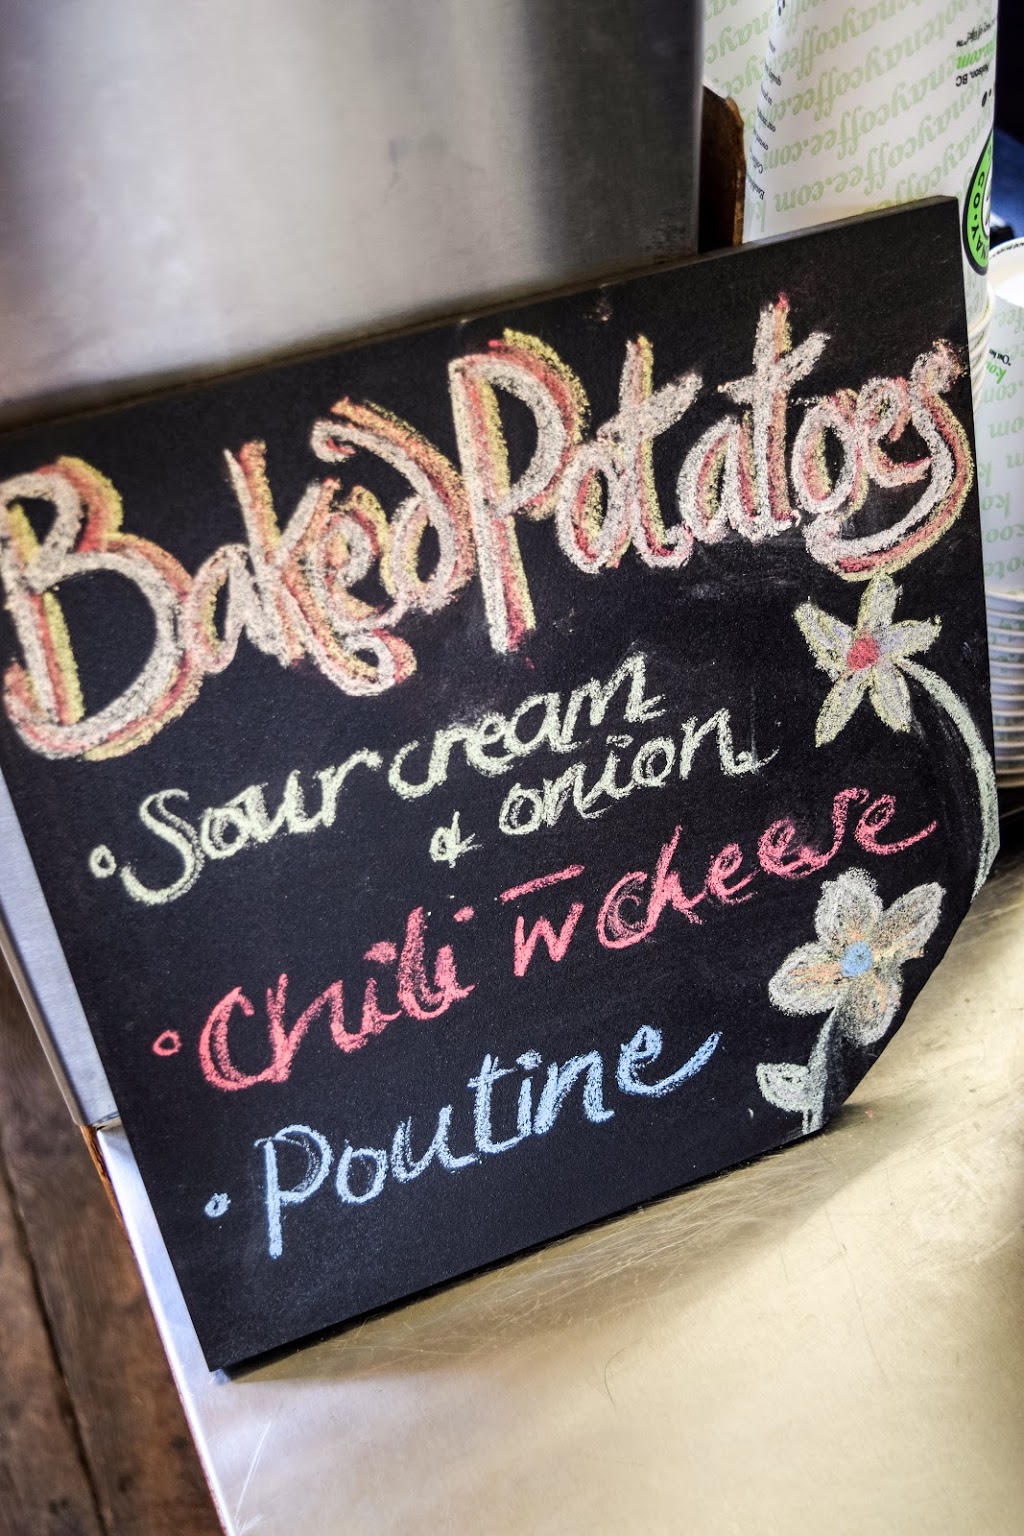 Baked Potatoes
• Sour cream
& onion
• Chili w̄ cheese
• Poutine
kootenaycoffee.com
Nelson, BC